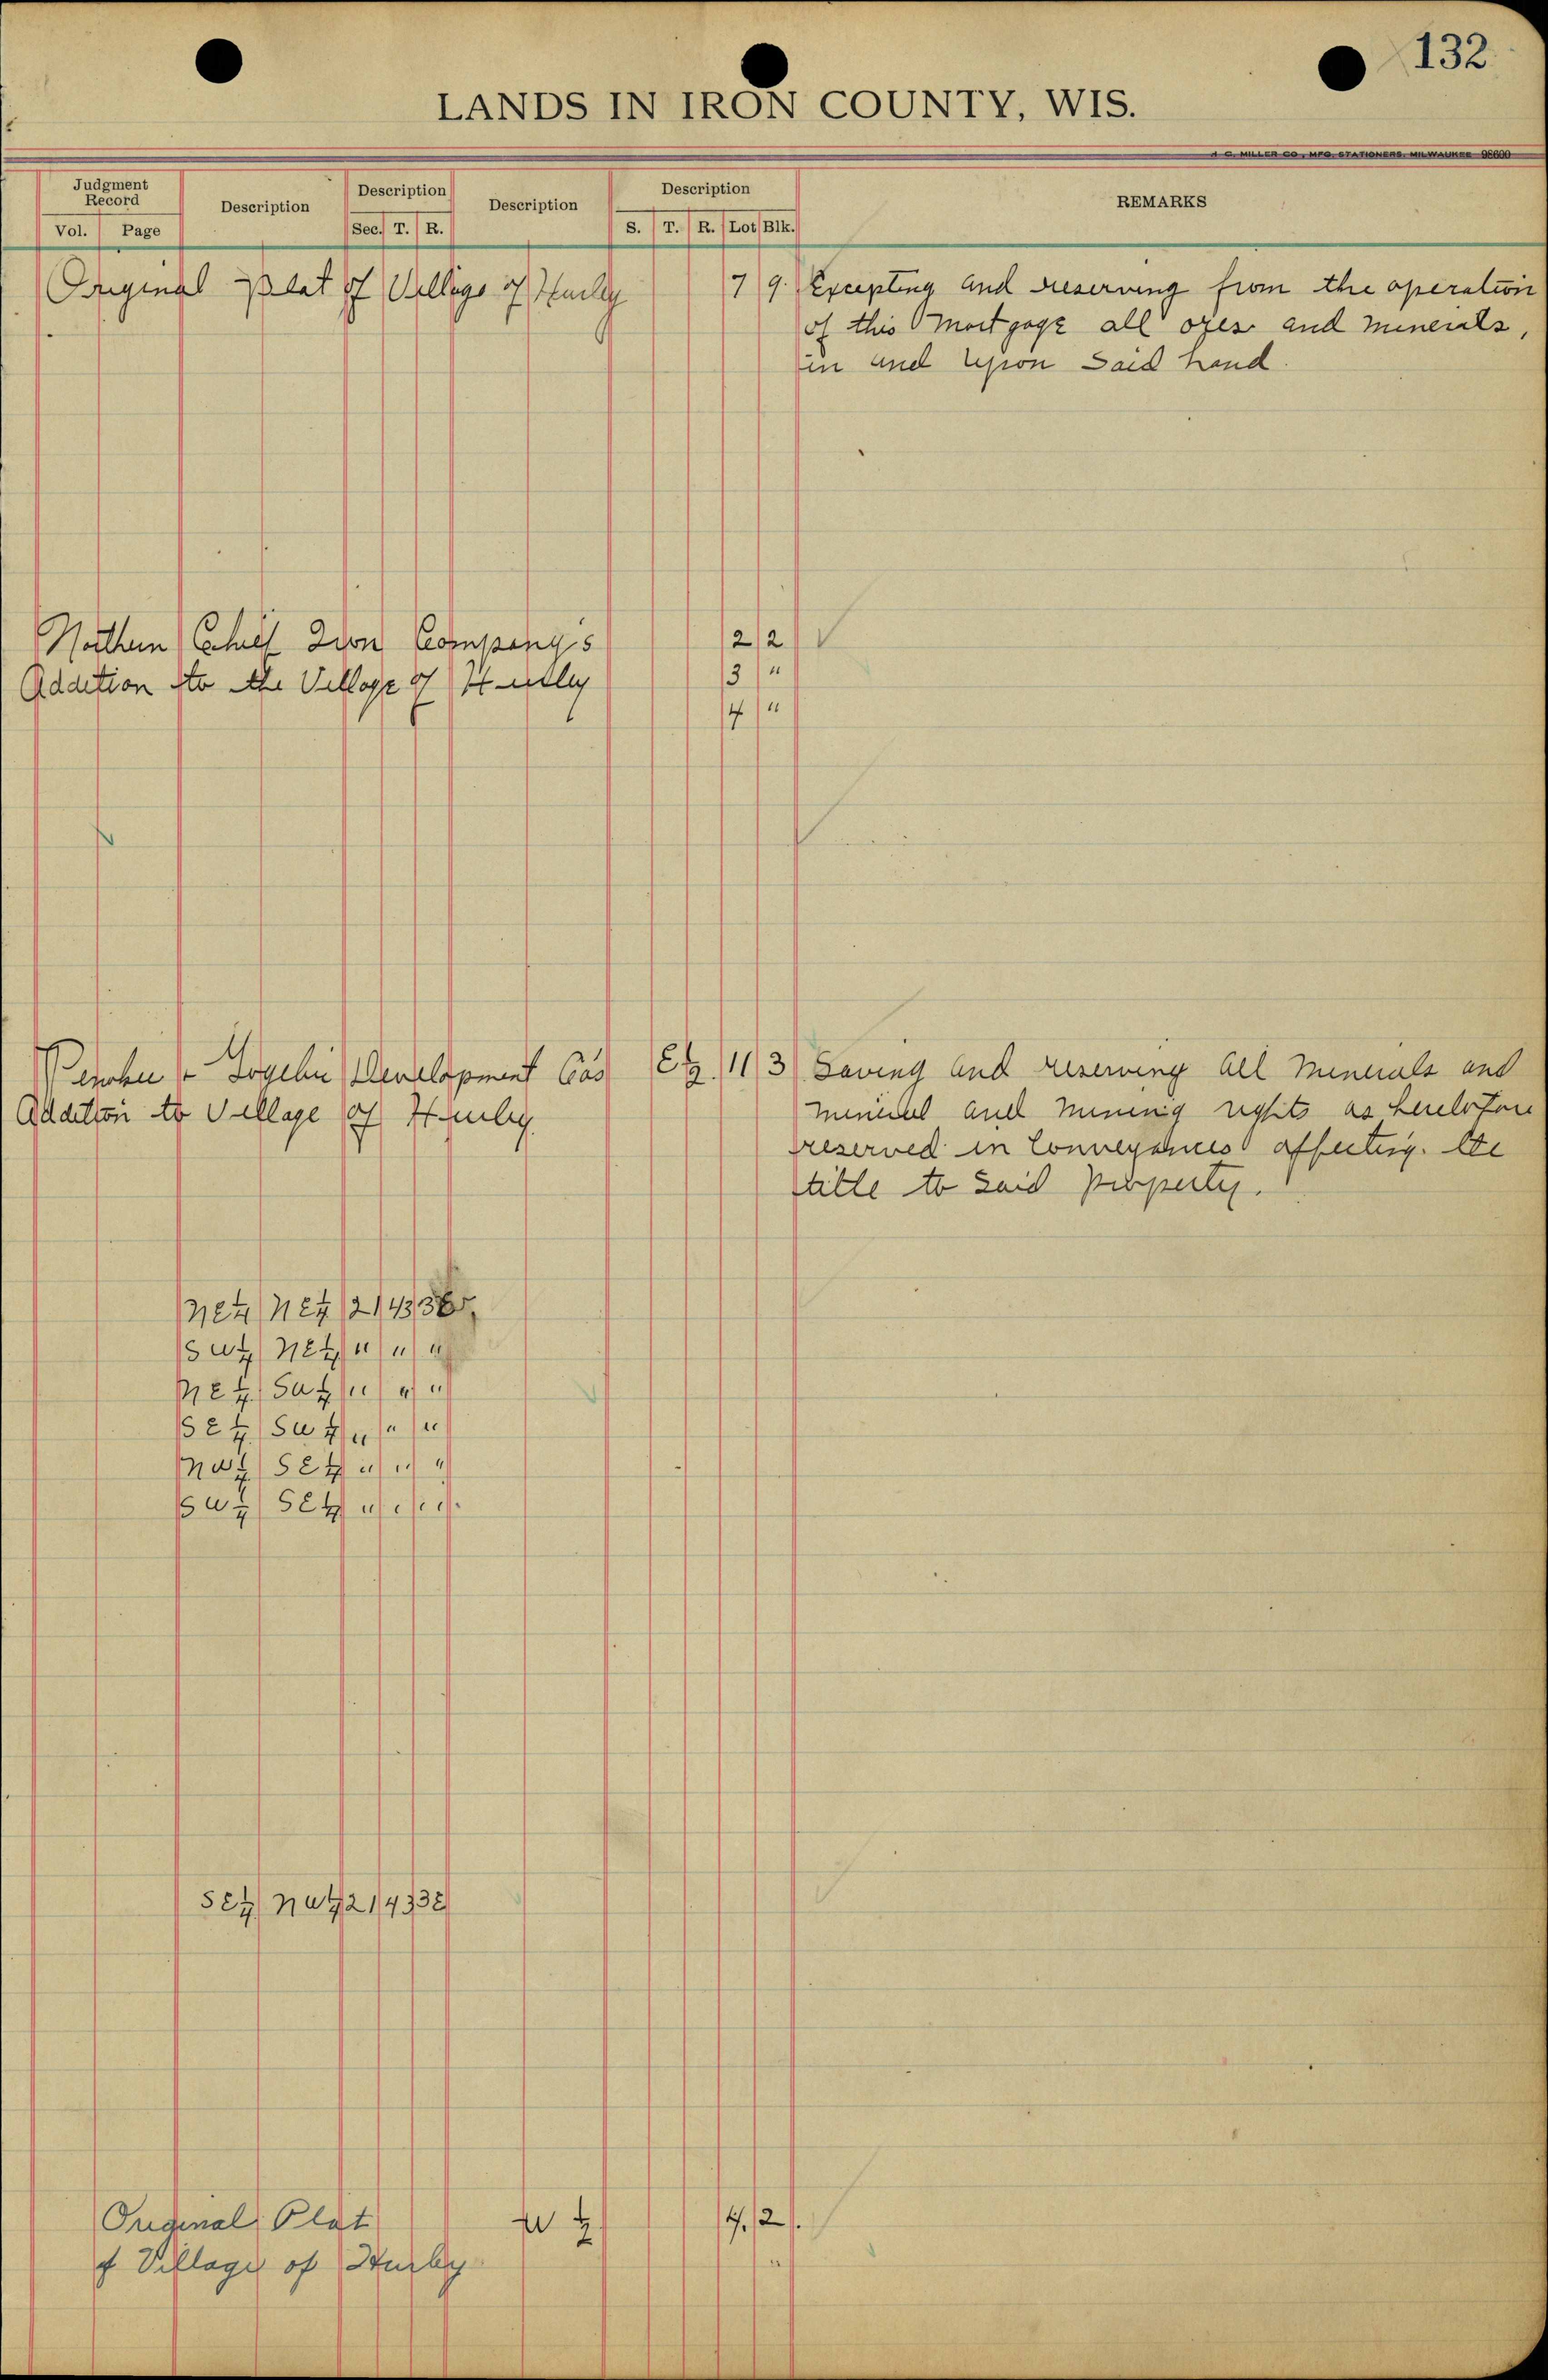 132
LANDS IN IRON COUNTY, WIS.
H. C. MILLER CO., MFG. STATIONERS, MILWAUKEE 98600
Judgment Record Description Description Description Description REMARKS
Vol. Page Sec. T. R. S. T. R. Lot Blk.
Original Plat of Village of Hurley 7 9 Excepting and reserving from the operation
of this Mortgage all ores and minerals,
in and upon said Land.
Northern Chief Iron Company's 2 2
Addition to the Village of Hurley 3 "
4 "
Gogebic Development Co's E½ 11 3 Saving and reserving all minerals and
Addition to Village of Hurley mineral and mining rights as heretofore
reserved in Conveyances affecting the
title to said property.
NE¼ NE¼ 21 43 3E
SW¼ NE¼ " " "
NE¼ SW¼ " " "
SE¼ SW¼ " " "
NW¼ SE¼ " " "
SW¼ SE¼ " " "
SE¼ NW¼ 21 43 3E
Original Plat W½ 4 2
of Village of Hurley "